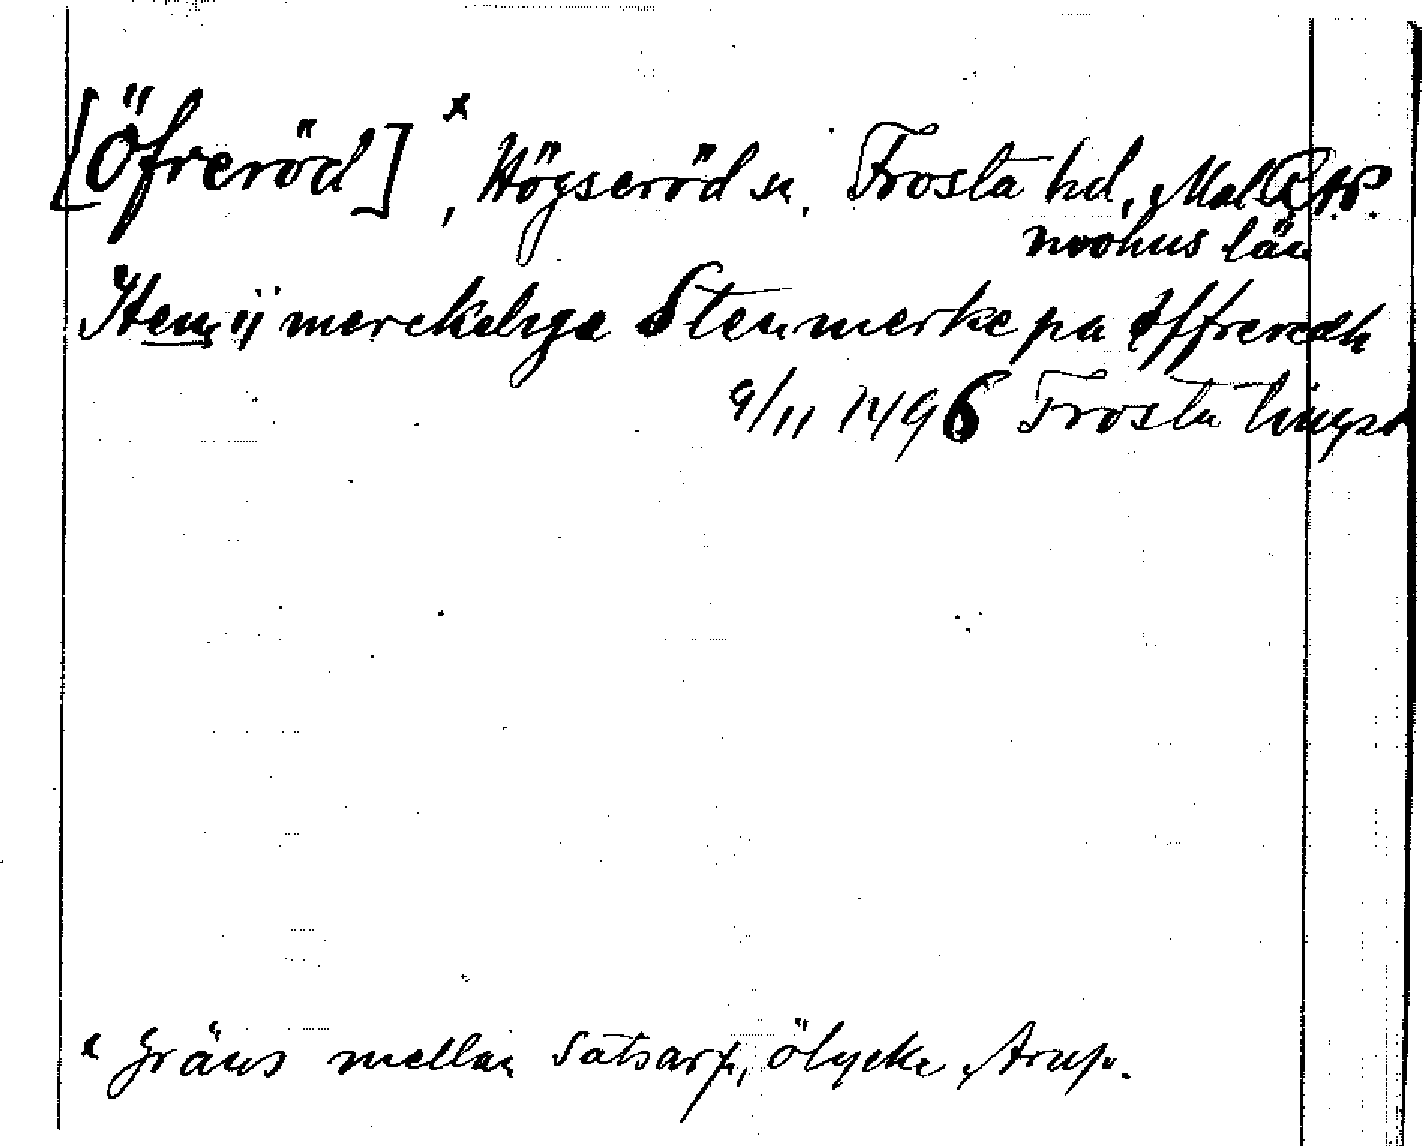 [Öfreröd] x, Högseröd sn, Frosta hd, Mal
möhus län
Item ij merckelige Stenmerke pa Offreredh
9/11 1496 Frosta tingsv
x Gräns mellan Satsarp, Ölycke, Arup.